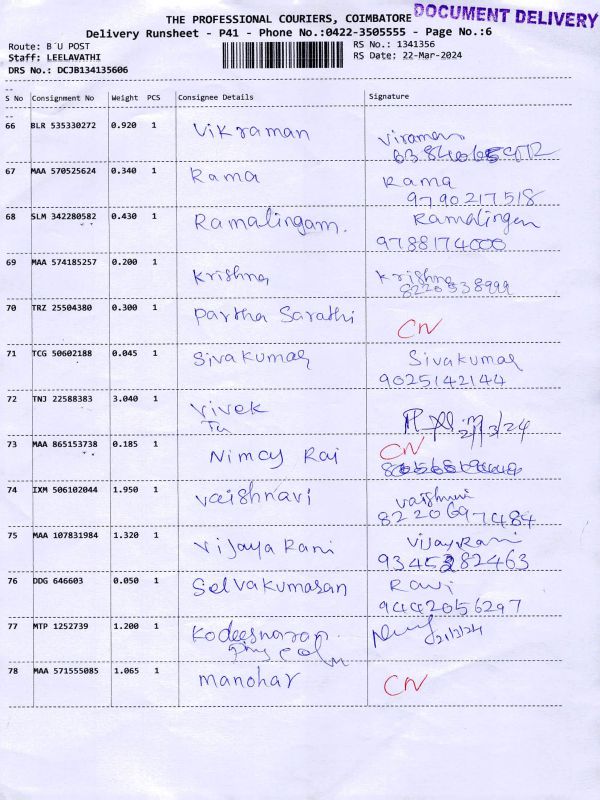 THE PROFESSIONAL COURIERS, COIMBATORE
DOCUMENT DELIVERY
Delivery Runsheet - P41 - Phone No.:0422-3505555 - Page No.:6
Route: B U POST
RS No.: 1341356
Staff: LEELAVATHI
RS Date: 22-Mar-2024
DRS No.: DCJB134135606
S No Consignment No Weight PCS Consignee Details Signature
66 BLR 535330272 0.920 1 Vikraman
67 MAA 570525624 0.340 1 Rama Rama
9790217518
68 SLM 342280582 0.430 1 Ramalingam. Ramalingam
9788174000
69 MAA 574185257 0.200 1 Krishna Krishna
8220538999
70 TRZ 25504380 0.300 1 Partha Sarathi CN
71 TCG 50602188 0.045 1 Sivakumar Sivakumar
9025142144
72 TNJ 22588383 3.040 1 Vivek
21/3/24
73 MAA 865153738 0.185 1 Nimay Rai CN
74 IXM 506102044 1.950 1 Vaishnavi Vaishnavi
8220697484
75 MAA 107831984 1.320 1 Vijaya Rani Vijaya Rani
9345282463
76 DDG 646603 0.050 1 Selvakumaran Ravi
9442056297
77 MTP 1252739 1.200 1
21/3/24
78 MAA 571555085 1.065 1 Manohar CN